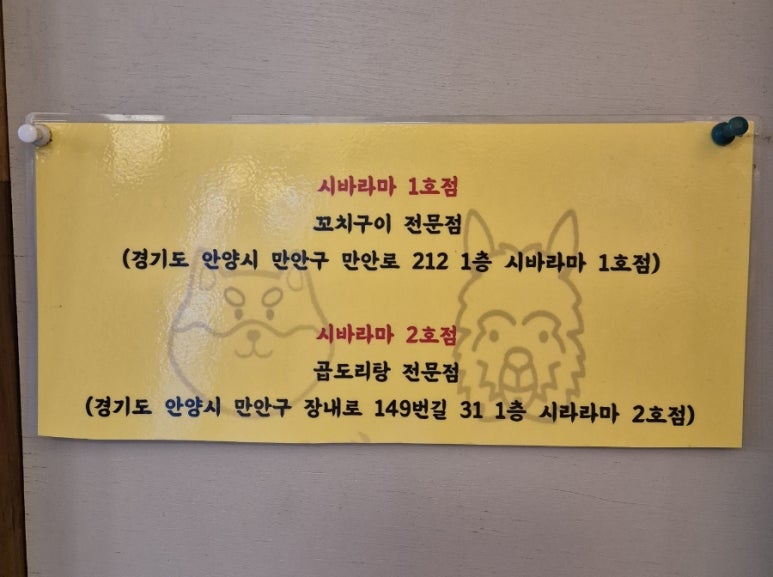 시바라마 1호점
꼬치구이 전문점
(경기도 안양시 만안구 만안로 212 1층 시바라마 1호점)
시바라마 2호점
곱도리탕 전문점
(경기도 안양시 만안구 장내로 149번길 31 1층 시라라마 2호점)